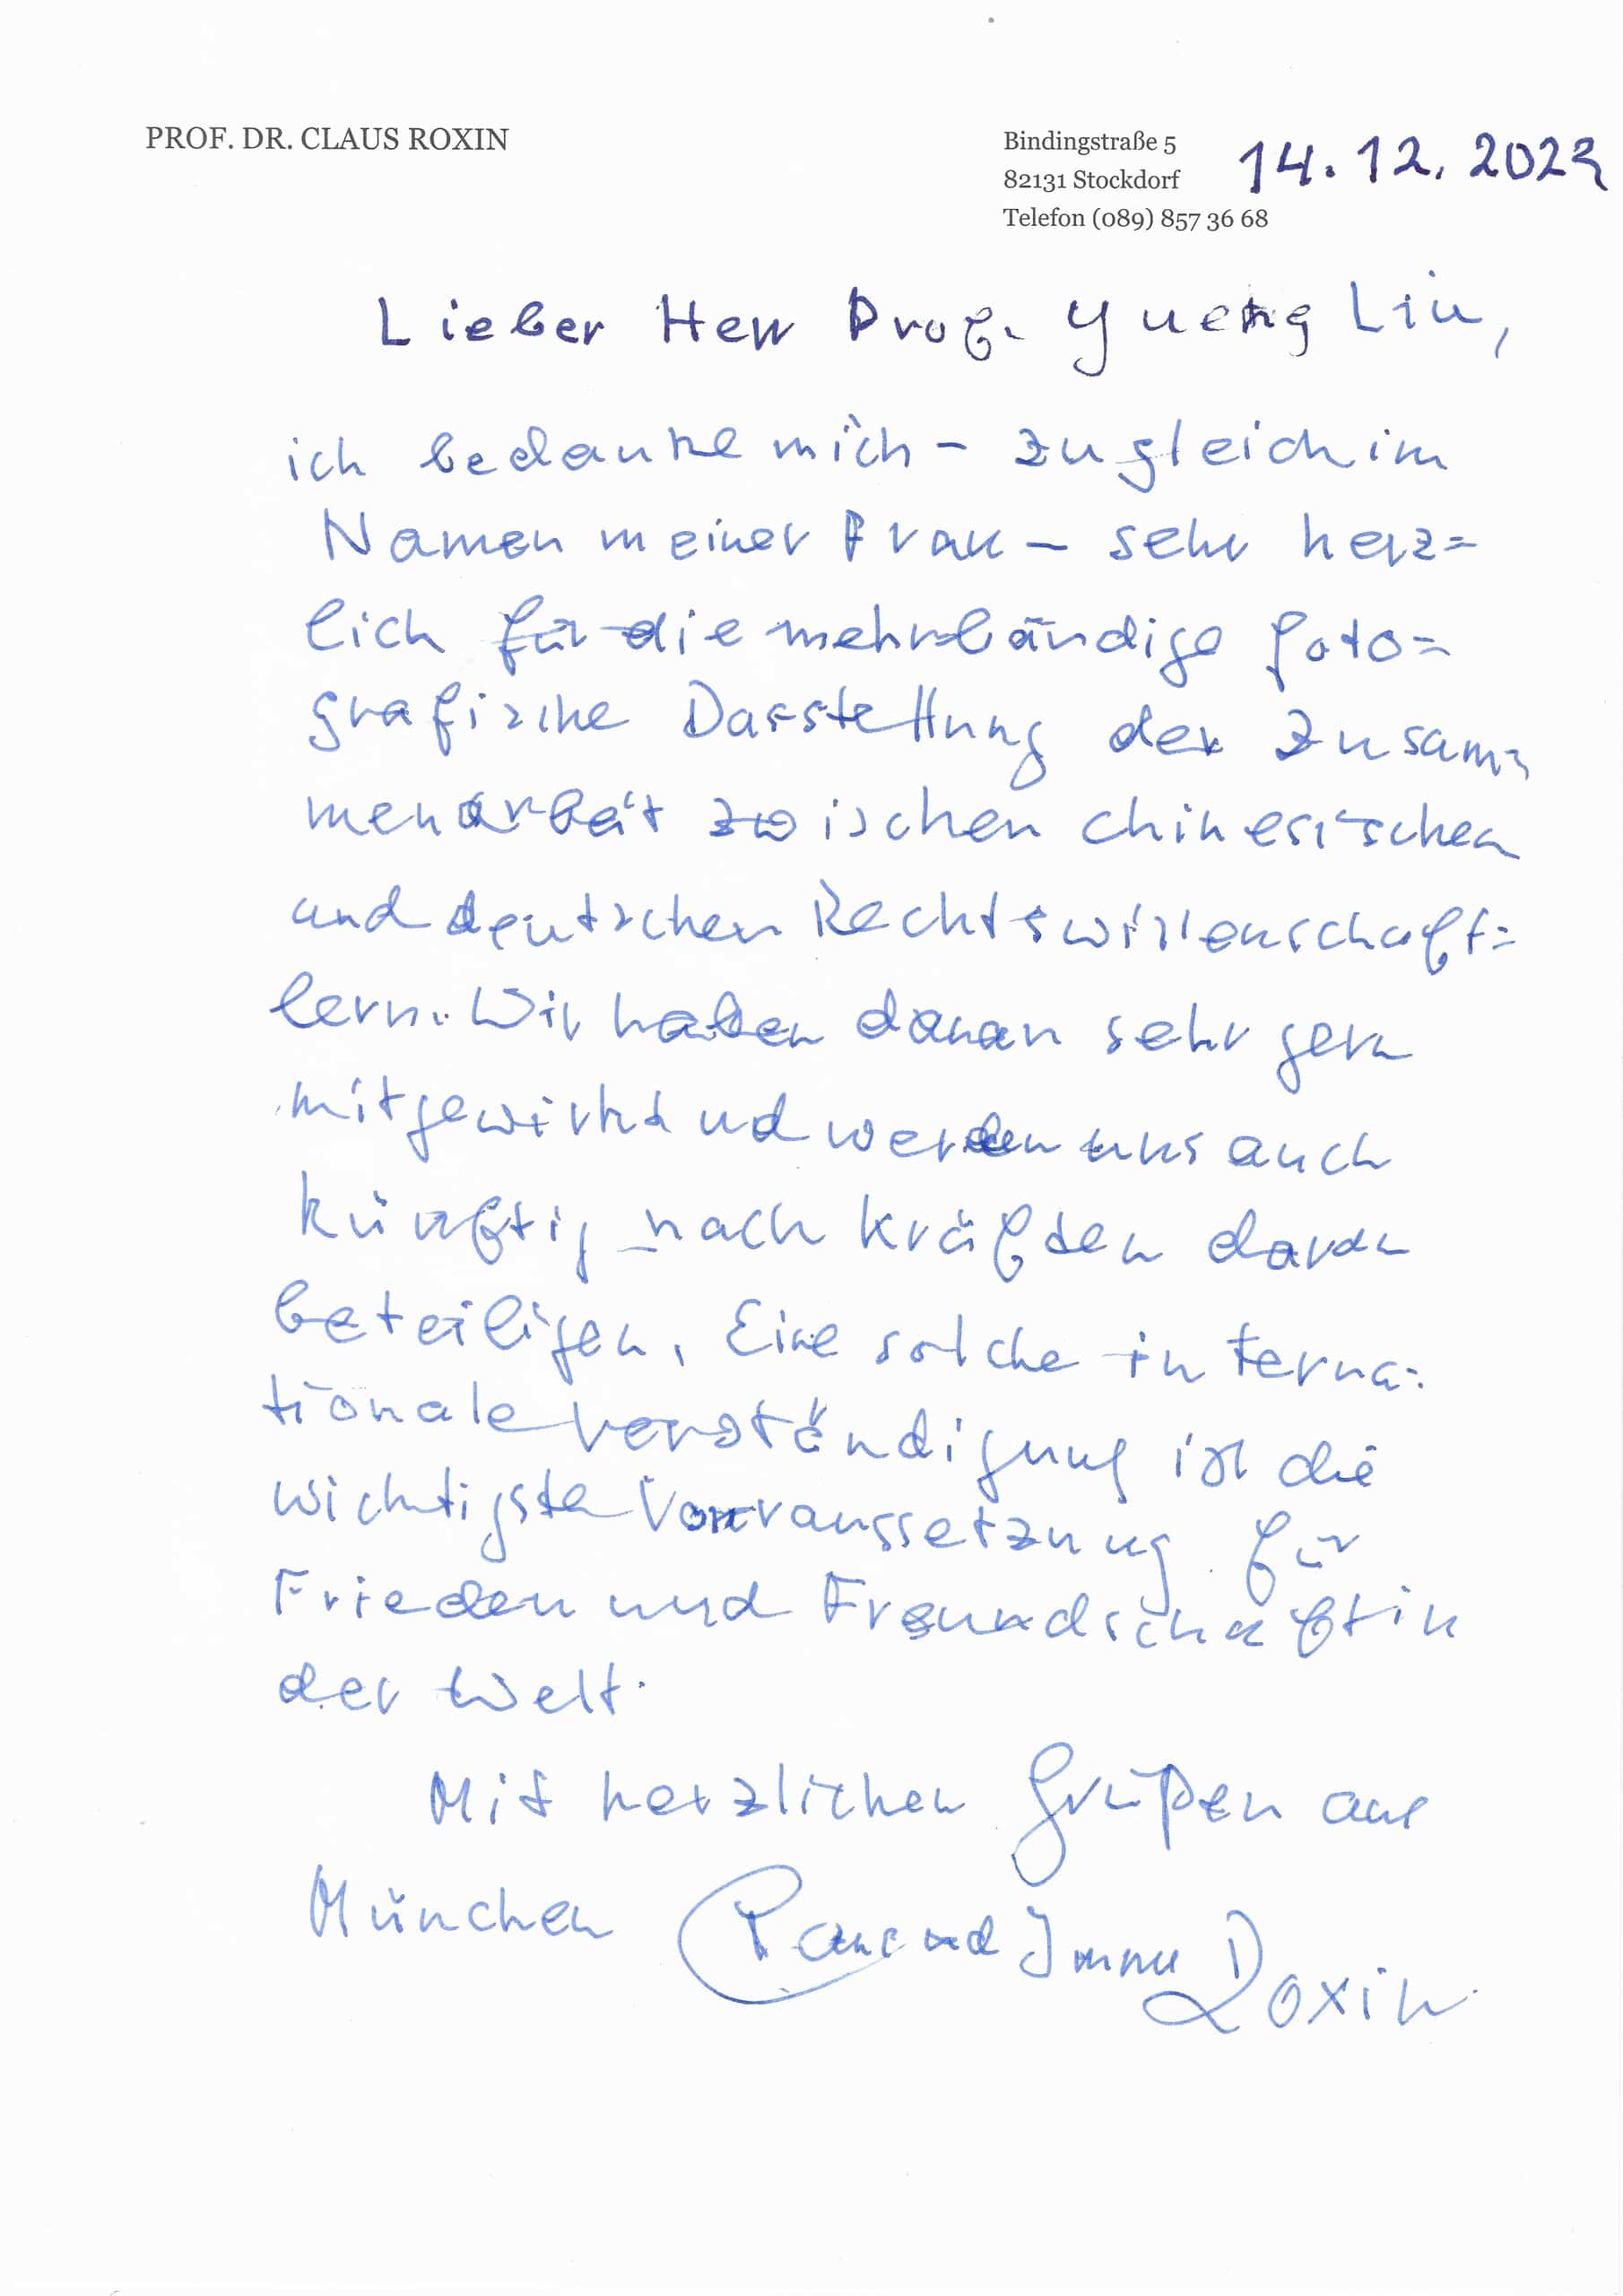 PROF. DR. CLAUS ROXIN
Bindingstraße 5
82131 Stockdorf
Telefon (089) 857 36 68
14.12.2023
Lieber Herr Prof. Liu,
ich bedanke mich – zugleich im
Namen meiner Frau – sehr herz=
lich für die mehrbändige foto=
grafische Darstellung der Zusam=
menarbeit zwischen chinesischen
und deutschen Rechtswissenschaft=
lern. Wir haben daran sehr gern
mitgewirkt ud werden uns auch
künftig nach Kräften daran
beteiligen. Eine solche interna=
tionale Verständigung ist die
wichtigste Vorraussetzung für
Frieden und Freundschaft in
der Welt.
Mit herzlichen Grüßen aus
München Claus und Imme Roxin